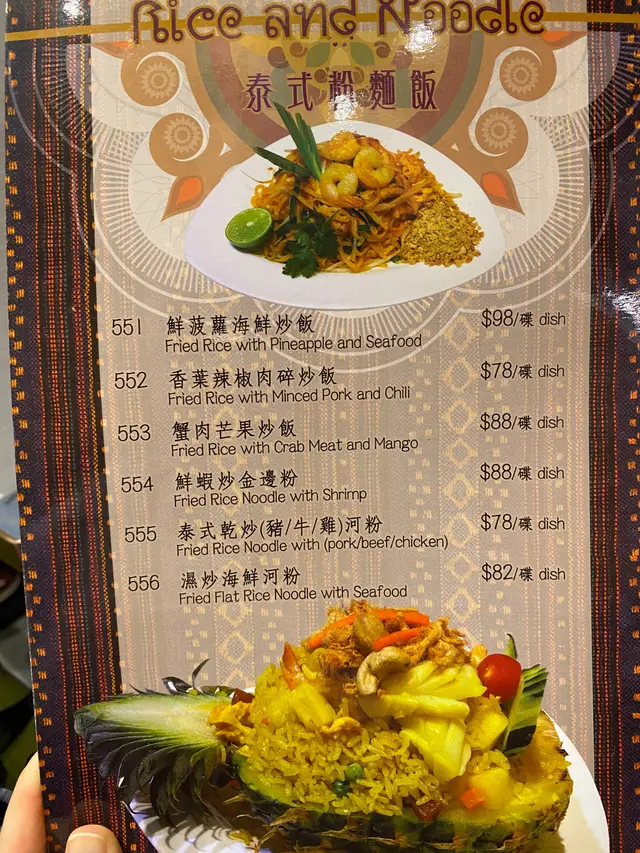 Rice and Noodle
泰式粉麵飯
551 鮮菠蘿海鮮炒飯 $98/碟 dish
Fried Rice with Pineapple and Seafood
552 香葉辣椒肉碎炒飯 $78/碟 dish
Fried Rice with Minced Pork and Chili
553 蟹肉芒果炒飯 $88/碟 dish
Fried Rice with Crab Meat and Mango
554 鮮蝦炒金邊粉 $88/碟 dish
Fried Rice Noodle with Shrimp
555 泰式乾炒(豬/牛/雞)河粉 $78/碟 dish
Fried Rice Noodle with (pork/beef/chicken)
556 濕炒海鮮河粉 $82/碟 dish
Fried Flat Rice Noodle with Seafood